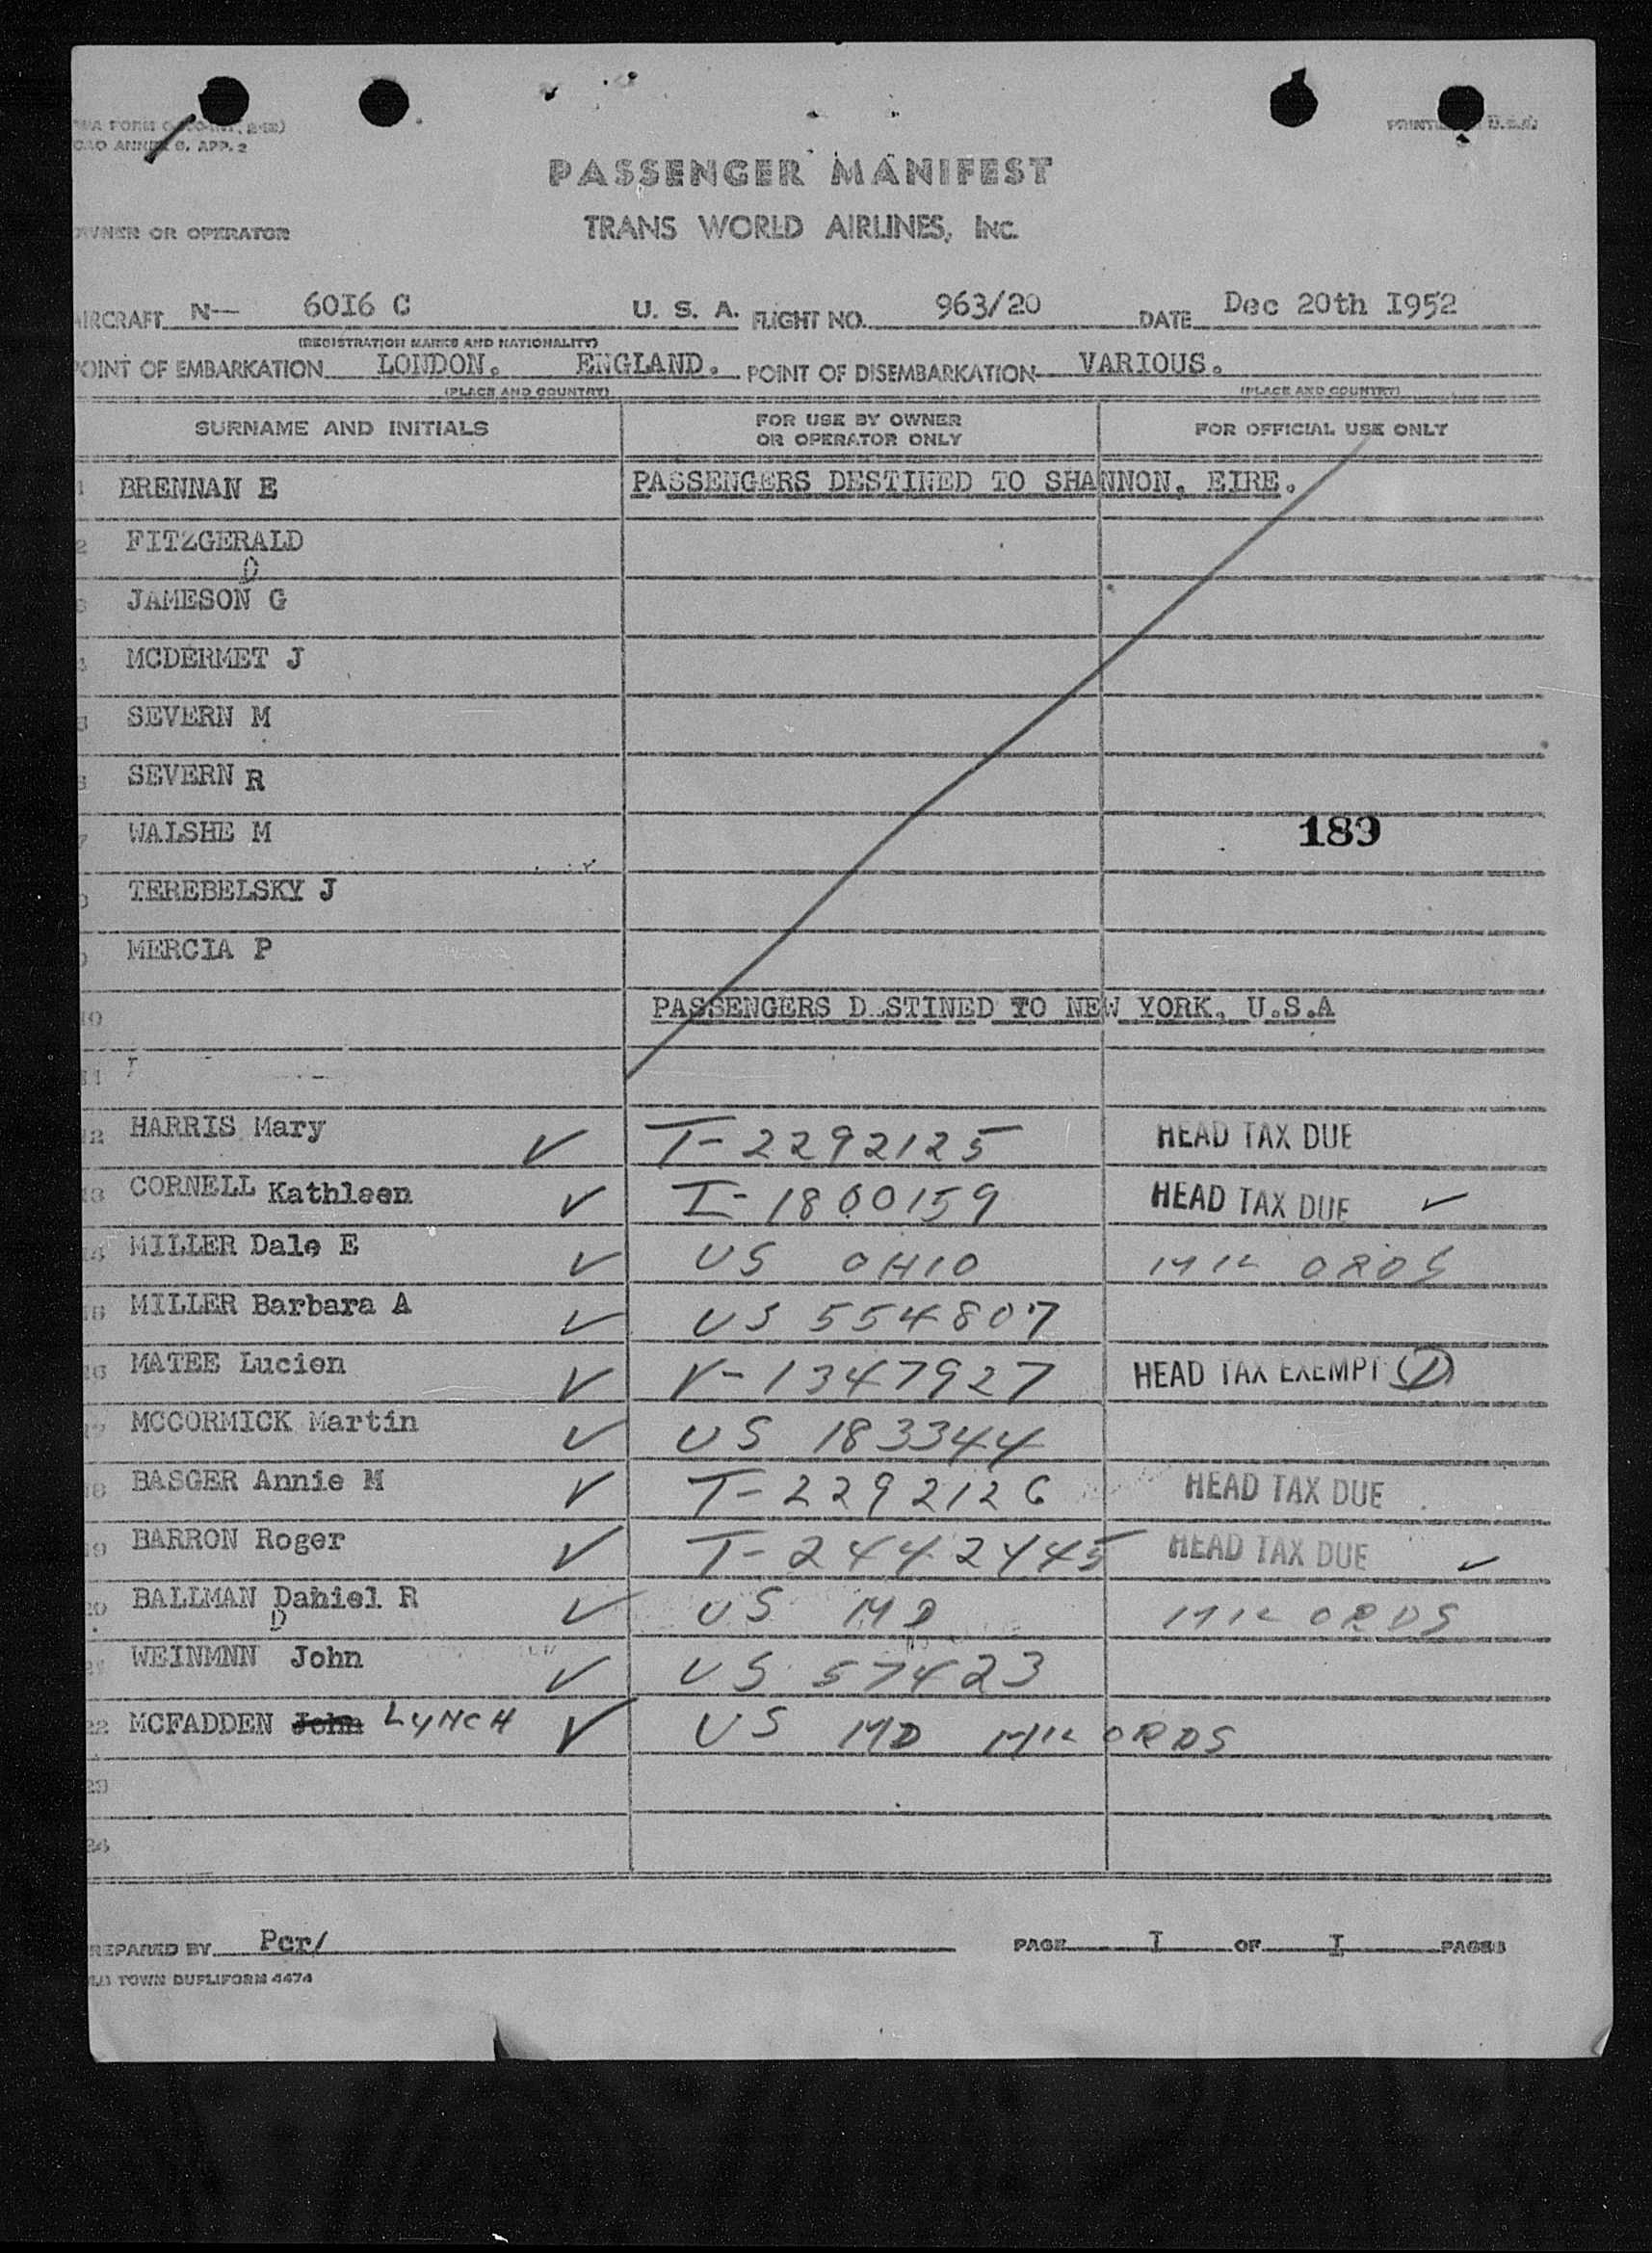 ANNEX 9. APP. 2
PRINTED U.S.A.
PASSENGER MANIFEST
TRANS WORLD AIRLINES, INC.
OWNER OR OPERATOR
AIRCRAFT N— 60I6 C U. S. A. FLIGHT NO. 963/20 DATE Dec 20th I952
(REGISTRATION MARKS AND NATIONALITY)
POINT OF EMBARKATION LONDON. ENGLAND. POINT OF DISEMBARKATION VARIOUS.
(PLACE AND COUNTRY) (PLACE AND COUNTRY)
SURNAME AND INITIALS FOR USE BY OWNER OR OPERATOR ONLY FOR OFFICIAL USE ONLY
1 BRENNAN E PASSENGERS DESTINED TO SHANNON, EIRE.
2 FITZGERALD
D
3 JAMESON G
4 MCDERMET J
5 SEVERN M
6 SEVERN R
7 WALSHE M 189
TEREBELSKY J
MERCIA P
10 PASSENGERS D STINED TO NEW YORK, U.S.A
11
12 HARRIS Mary ✓ T-2292125 HEAD TAX DUE
13 CORNELL Kathleen ✓ I-1800159 HEAD TAX DUE ✓
14 MILLER Dale E ✓ US OHIO MIL ORDS
15 MILLER Barbara A ✓ US 554807
16 MATEE Lucien ✓ V-1347927 HEAD TAX EXEMPT
17 MCCORMICK Martin ✓ US 183344
18 BASGER Annie M ✓ T-2292126 HEAD TAX DUE
19 BARRON Roger ✓ T-2442445 HEAD TAX DUE ✓
20 BALLMAN Daniel R ✓ US MD MIL ORDS
D
21 WEINMNN John ✓ US 57423
22 MCFADDEN John LYNCH ✓ US MD MIL ORDS
23
24
PREPARED BY Pcr/ PAGE I OF I PAGES
OLD TOWN DUPLIFORM 4474